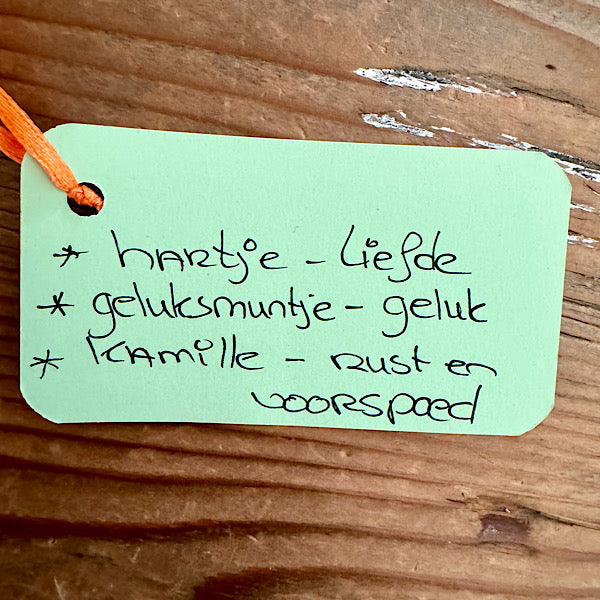 * hartje - Liefde
* geluksmuntje - geluk
* Kamille - Rust en
voorspoed